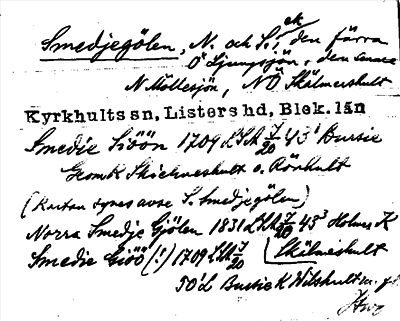 Smedjegölen, N. och S.; ek den förra
Ö Ljungsjön, den andra
N Möllesjön, NÖ Skälmershult
Kyrkhults sn, Listers hd, Blek. län
Smedie Siöön 1709 LSA 7/20 43¹ Bursie
Geom K Skielmeshult o. Rönhult
(Kartan synes avse S. Smedjegölen)
Norra Smedje Gjölen 1831 LSA 7/20 43³ Holmer K
Smedie Giöö (!) 1709 LSA 7/20 Skälmeshult
50¹ Bursie K Wilshult m. fl.